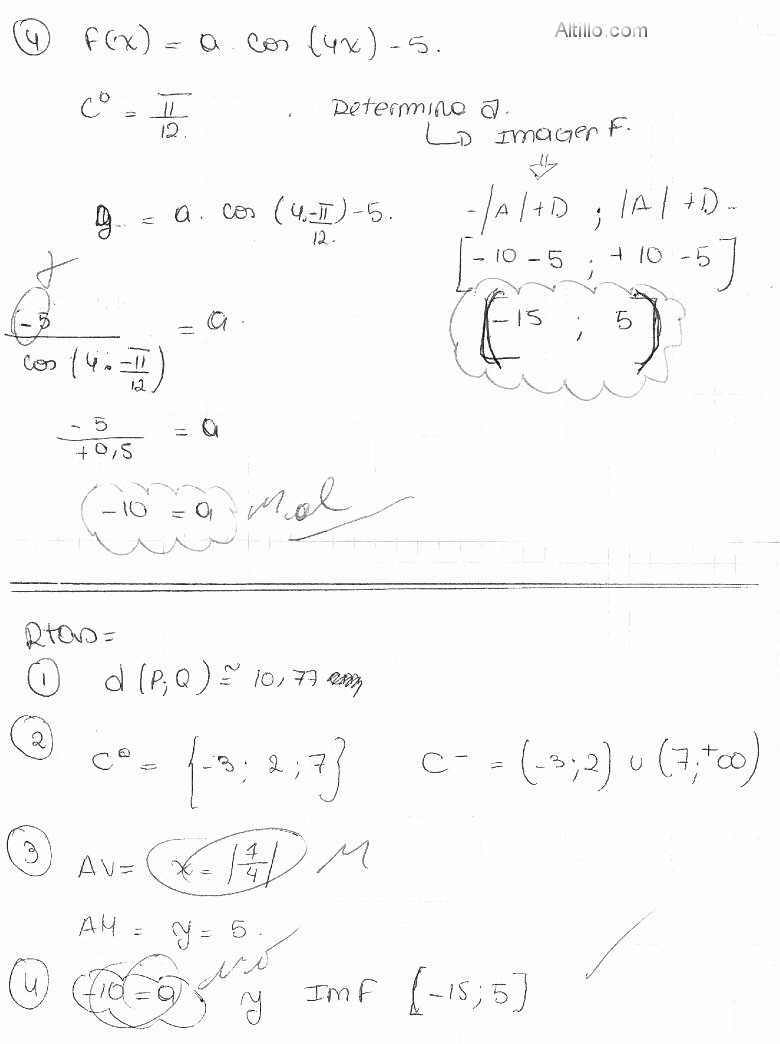 Altillo.com
④ F(x) = a . cos (4x) - 5.
C⁰ = π/12 . Determina a.
↳ Imagen F.
⇓
y = a . cos (4.-π/12) - 5.
-|A|+D ; |A|+D
[-10-5 ; +10-5]
-5/cos(4.-π/12) = a
[-15 ; 5]
-5/+0,5 = a
-10 = a Mal
Rtas=
① d(P;Q) ≅ 10,77
② C⁰ = {-3; 2; 7} C⁻ = (-3;2) ∪ (7;+∞)
③ AV= x = |7/4| M
AH = y = 5.
④ -10 = a y ImF [-15;5]